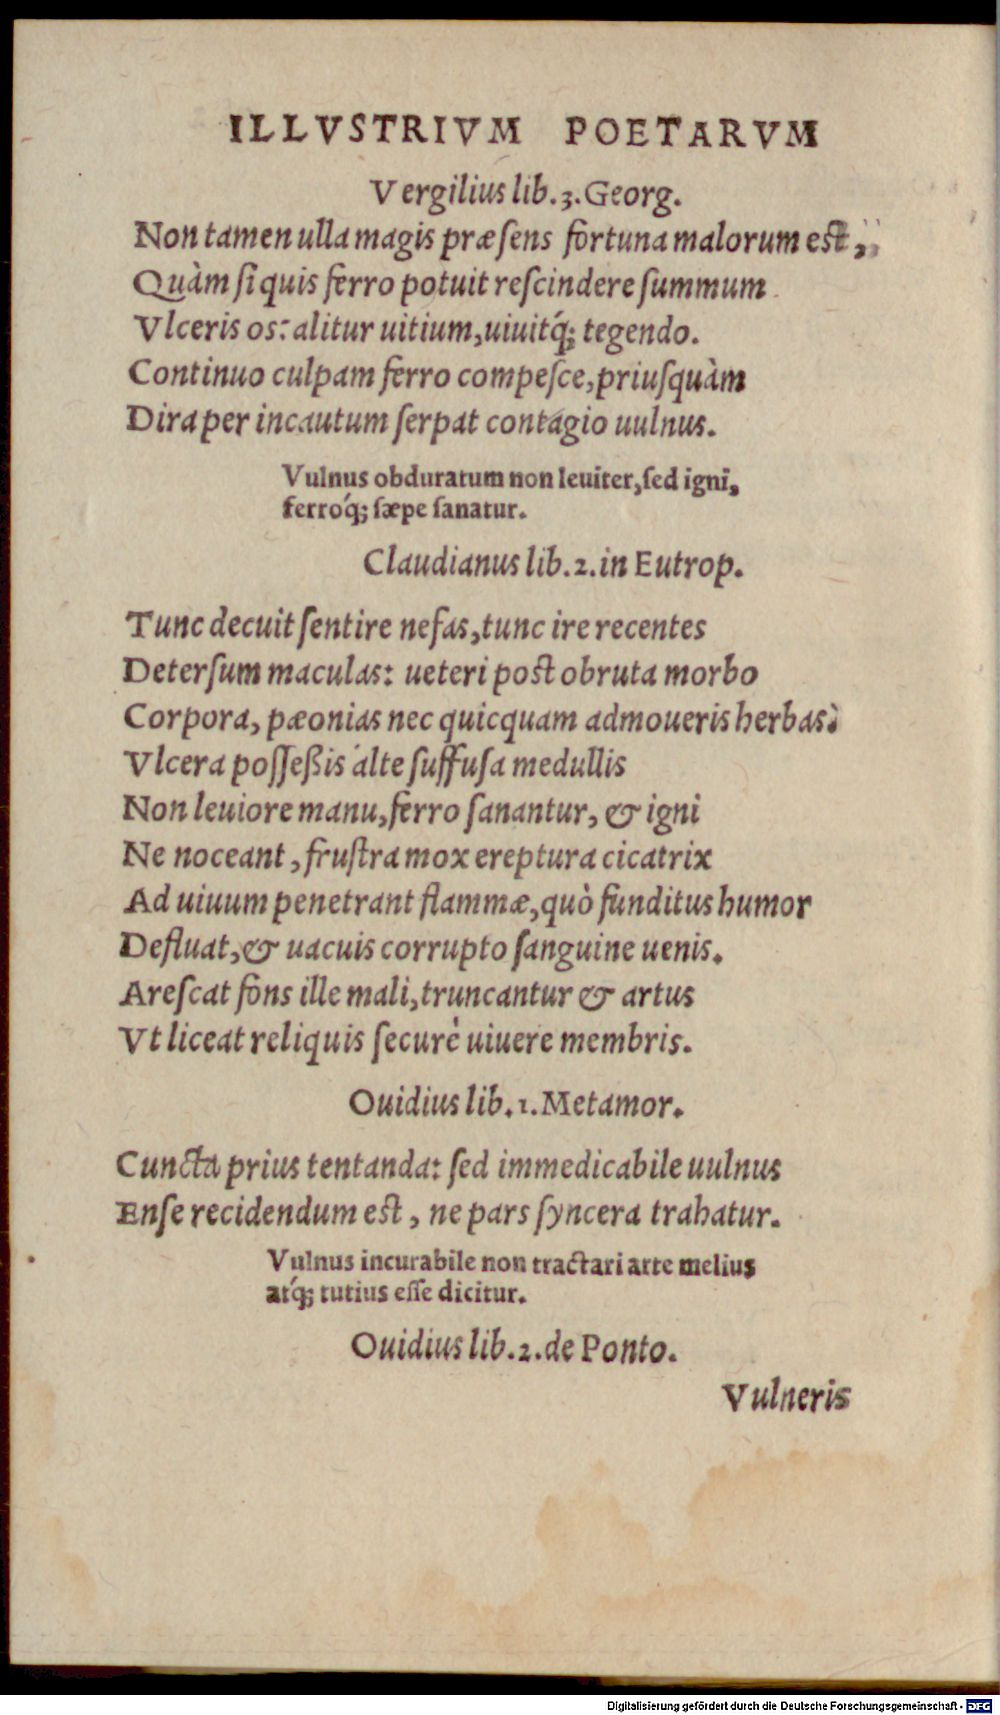 ILLVSTRIVM POETARVM
Vergilius lib.3.Georg.
Non tamen ulla magis præsens fortuna malorum est,
Quàm si quis ferro potuit reſcindere ſummum
Vlceris os: alitur uitium,uiuitq́; tegendo.
Continuo culpam ferro compeſce,priuſquàm
Dira per incautum ſerpat contagio uulnus.
Vulnus obduratum non leuiter,ſed igni,
ferroq́; ſæpe ſanatur.
Claudianus lib.2.in Eutrop.
Tunc decuit ſentire nefas,tunc ire recentes
Deterſum maculas: ueteri poſt obruta morbo
Corpora, pæonias nec quicquam admoueris herbas:
Vlcera poſſeßis alte ſuffuſa medullis
Non leuiore manu,ferro ſanantur, & igni
Ne noceant, fruſtra mox ereptura cicatrix
Ad uiuum penetrant flammæ,quò funditus humor
Defluat,& uacuis corrupto ſanguine uenis.
Areſcat fons ille mali,truncantur & artus
Vt liceat reliquis ſecurè uiuere membris.
Ouidius lib.1.Metamor.
Cuncta prius tentanda: ſed immedicabile uulnus
Enſe recidendum eſt, ne pars ſyncera trahatur.
Vulnus incurabile non tractari arte melius
atq́; tutius eſſe dicitur.
Ouidius lib.2.de Ponto.
Vulneris
Digitalisierung gefördert durch die Deutsche Forschungsgemeinschaft - DFG